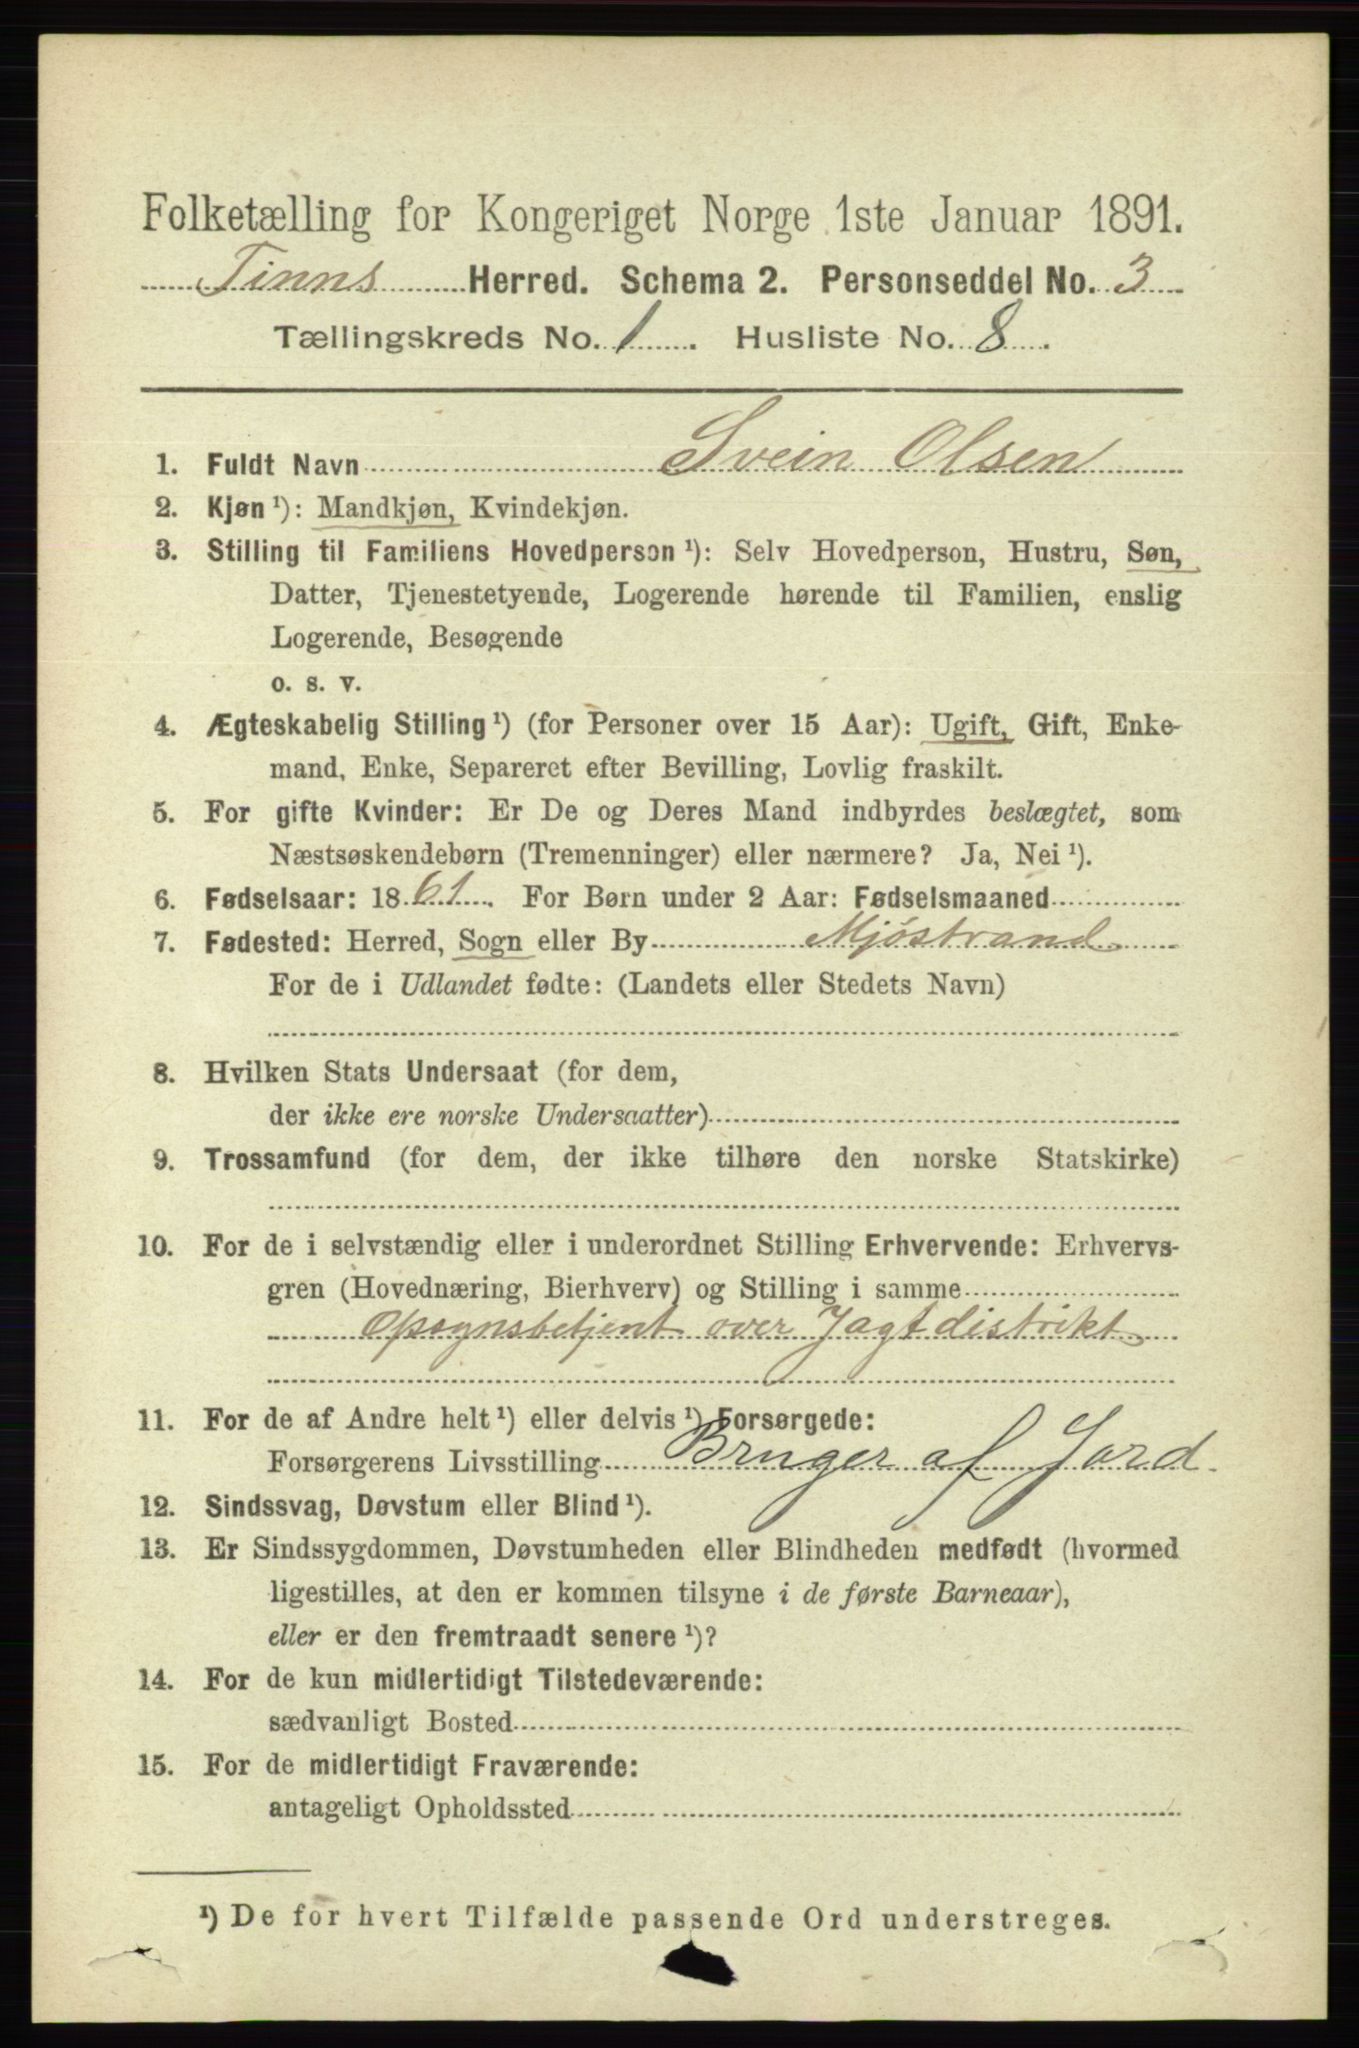 Folketælling for Kongeriget Norge 1ste Januar 1891.
Tinns Herred. Schema 2. Personseddel No. 3
Tællingskreds No. 1. Husliste No. 8.
1. Fuldt Navn Svein Olsen
2. Kjøn ¹): Mandkjøn, Kvindekjøn.
3. Stilling til Familiens Hovedperson ¹): Selv Hovedperson, Hustru, Søn,
Datter, Tjenestetyende, Logerende hørende til Familien, enslig
Logerende, Besøgende
o. s. v.
4. Ægteskabelig Stilling ¹) (for Personer over 15 Aar): Ugift, Gift, Enke-
mand, Enke, Separeret efter Bevilling, Lovlig fraskilt.
5. For gifte Kvinder: Er De og Deres Mand indbyrdes beslægtet, som
Næstsøskendebørn (Tremenninger) eller nærmere? Ja, Nei ¹).
6. Fødselsaar: 1861. For Børn under 2 Aar: Fødselsmaaned
7. Fødested: Herred, Sogn eller By Mjöstrand
For de i Udlandet fødte: (Landets eller Stedets Navn)
8. Hvilken Stats Undersaat (for dem,
der ikke ere norske Undersaatter)
9. Trossamfund (for dem, der ikke tilhøre den norske Statskirke)
10. For de i selvstændig eller i underordnet Stilling Erhvervende: Erhvervs-
gren (Hovednæring, Bierhverv) og Stilling i samme
Opsynsbetjent over Jagtdistrikt
11. For de af Andre helt ¹) eller delvis ¹) Forsørgede:
Forsørgerens Livsstilling Bruger af Jord.
12. Sindssvag, Døvstum eller Blind ¹).
13. Er Sindssygdommen, Døvstumheden eller Blindheden medfødt (hvormed
ligestilles, at den er kommen tilsyne i de første Barneaar),
eller er den fremtraadt senere ¹)?
14. For de kun midlertidigt Tilstedeværende:
sædvanligt Bosted
15. For de midlertidigt Fraværende:
antageligt Opholdssted
¹) De for hvert Tilfælde passende Ord understreges.